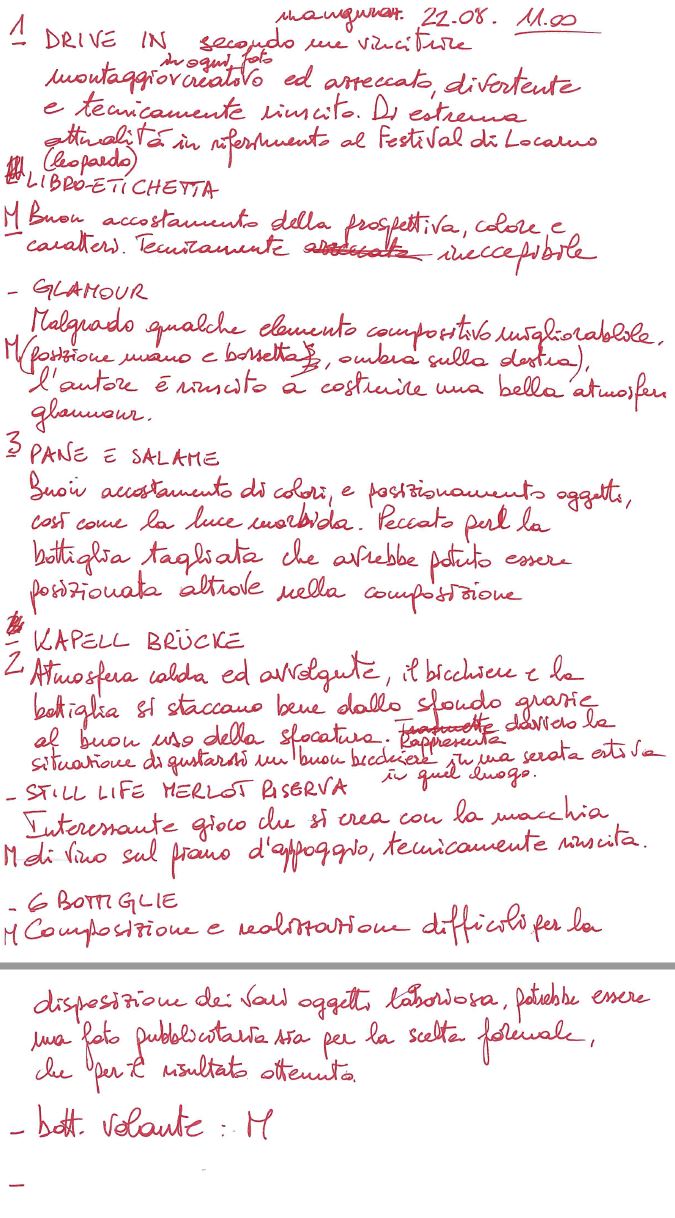 inauguraz. 22.08. 11.00
1 DRIVE IN secondo me vincitrice
in ogni foto
montaggio creativo ed azzeccato, divertente
e tecnicamente riuscito. Di estrema
attualità in riferimento al Festival di Locarno
(leopardo)
- LIBRO-ETICHETTA
M Buon accostamento della prospettiva, colore e
caratteri. Tecnicamente azzeccata ineccepibile
- GLAMOUR
Malgrado qualche elemento compositivo migliorabile,
M (posizione mano e borsetta, ombra sulla destra),
l'autore è riuscito a costruire una bella atmosfera
glamour.
3 PANE E SALAME
Buon accostamento di colori, e posizionamento oggetti,
così come la luce morbida. Peccato per la
bottiglia tagliata che avrebbe potuto essere
posizionata altrove nella composizione
- KAPELL BRÜCKE
2 Atmosfera calda ed avvolgente, il bicchiere e la
bottiglia si staccano bene dallo sfondo grazie
al buon uso della sfocatura. Trasmette davvero la
Rappresenta
situazione di gustarsi un buon bicchiere in una serata estiva
in quel luogo.
- STILL LIFE MERLOT RISERVA
Interessante gioco che si crea con la macchia
M di vino sul piano d'appoggio, tecnicamente riuscita.
- 6 BOTTIGLIE
M Composizione e realizzazione difficili per la
disposizione dei vari oggetti laboriosa, potrebbe essere
una foto pubblicitaria sia per la scelta formale,
che per il risultato ottenuto.
- bott. volante : M
-